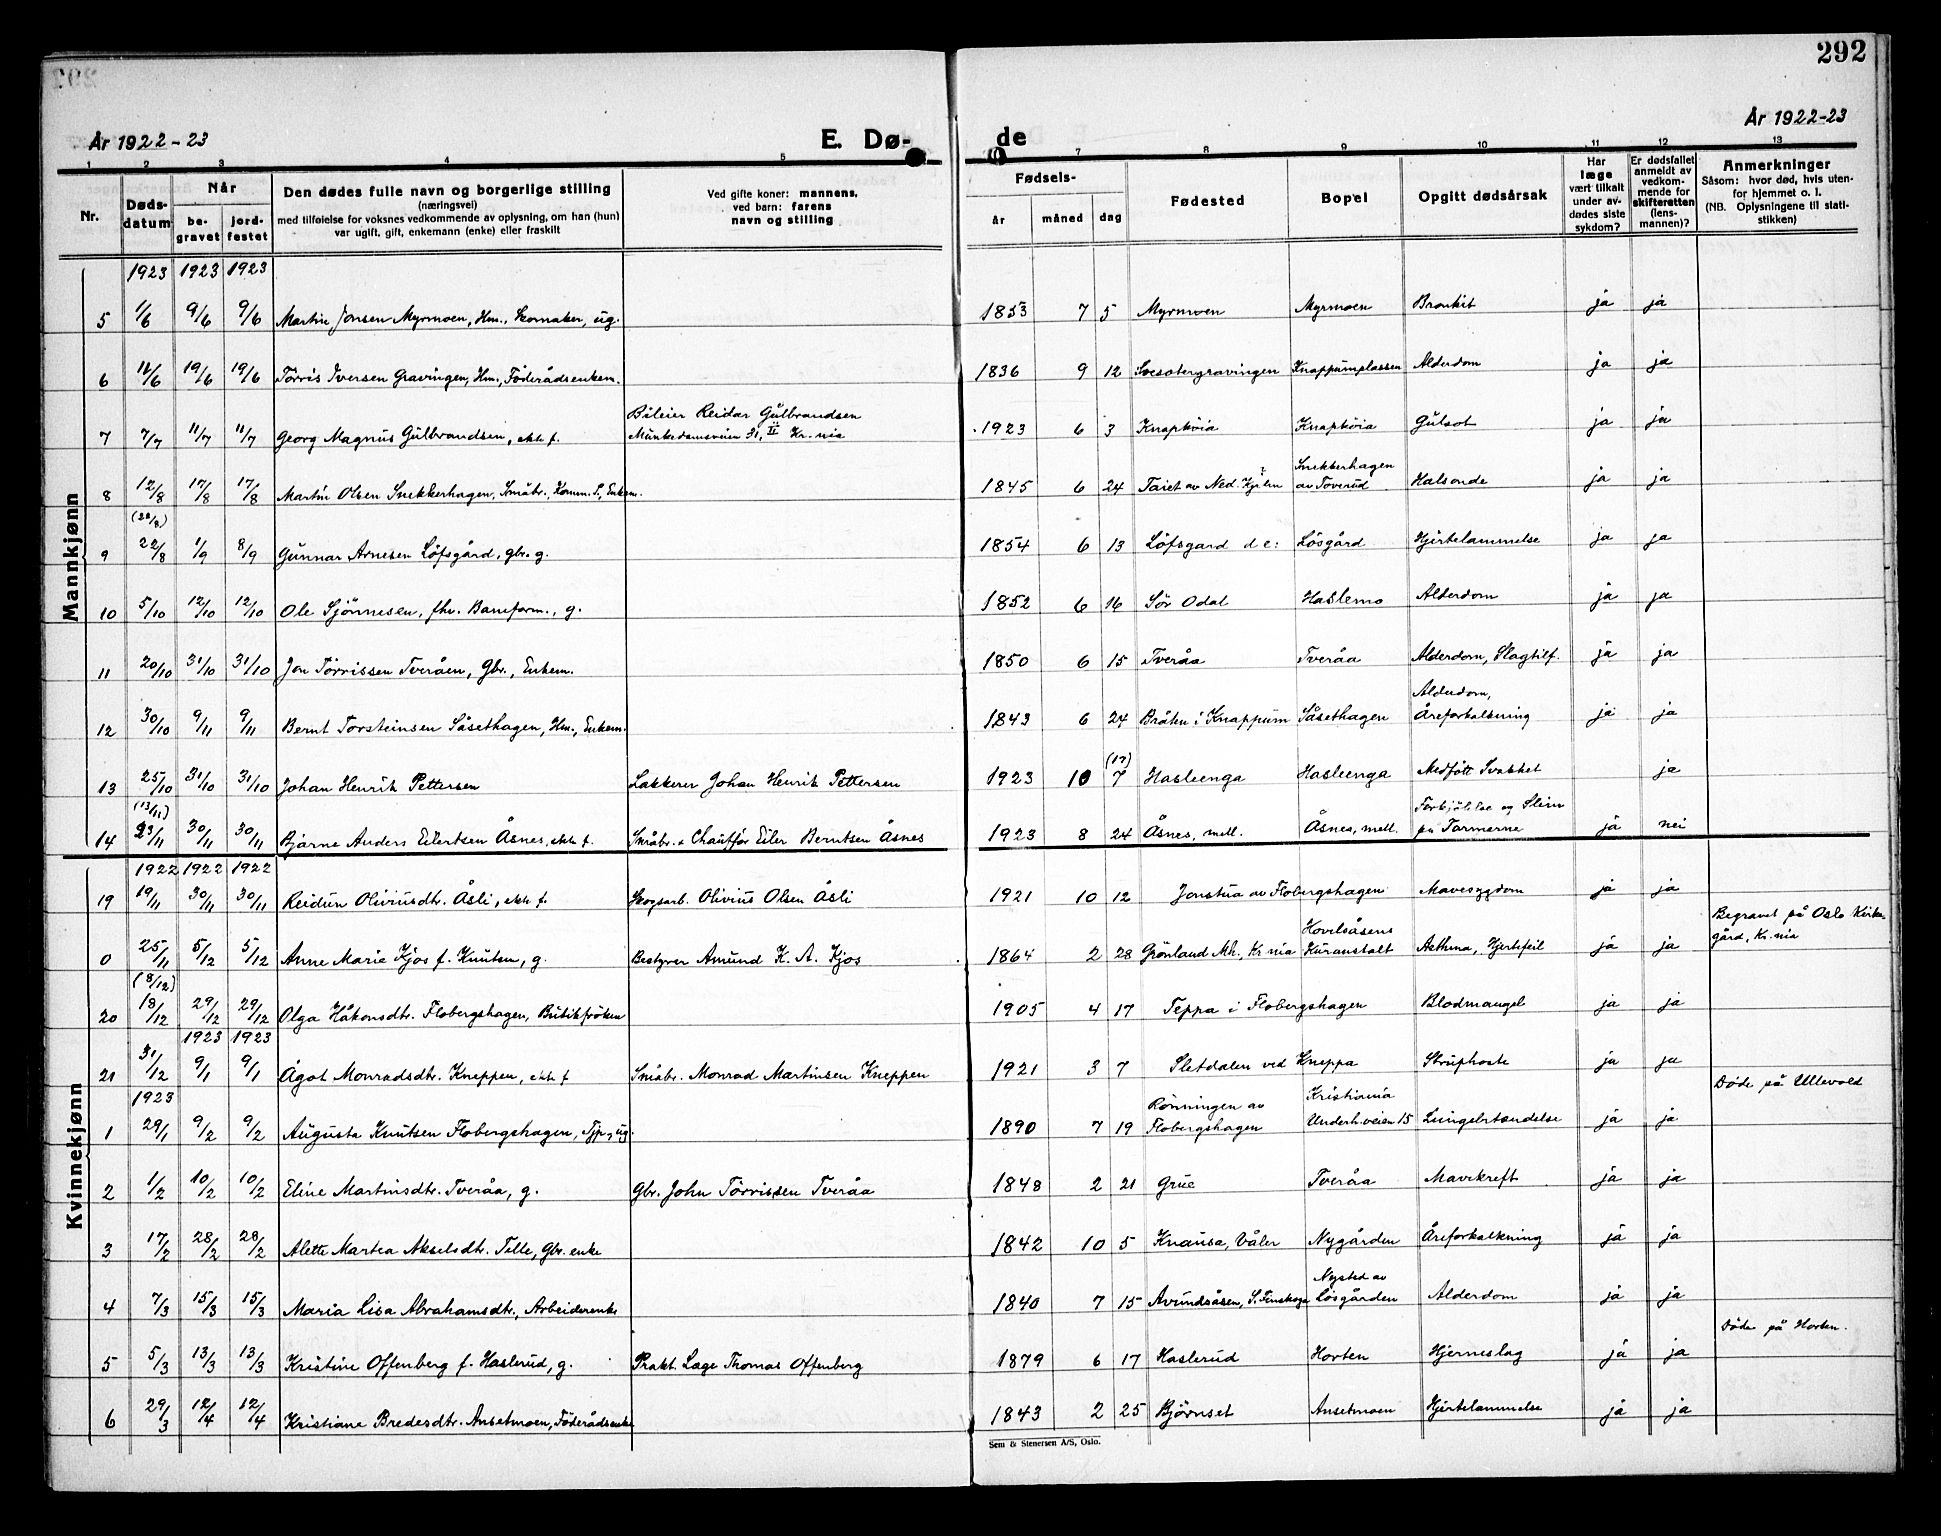 292
År 1922-23
E. Døde
År 1922-23
1 2 3 4 5 7 8 9 10 11 12 13
Nr.
Dødsdatum
Når
begravet
jordfestet
Den dødes fulle navn og borgerlige stilling
(næringsvei)
med tilføielse for voksnes vedkommende av oplysning, om han (hun)
var ugift, gift, enkemann (enke) eller fraskilt
Ved gifte koner: mannens,
ved barn: farens
navn og stilling
Fødsels-
år måned dag
Fødested
Bopel
Opgitt dødsårsak
Har
læge
vært tilkalt
under avdødes siste
sykdom?
Er dødsfallet
anmeldt av
vedkommende for
skifteretten
(lensmannen)?
Anmerkninger
Såsom: hvor død, hvis utenfor hjemmet o. l.
(NB. Oplysningene til statistikken)
Mannkjønn
1923 1923 1923
5 1/6 9/6 9/6 Martin Jonsen Myrmoen, Hm., Skomaker, ug. 1853 7 5 Myrmoen Myrmoen Bronkit ja ja
6 11/6 19/6 19/6 Törris Iversen Gravingen, Hm., Föderådsenkem. 1836 9 12 Soesætergravingen Knappumplassen Alderdom ja ja
7 7/7 11/7 11/7 Georg Magnus Gulbrandsen, ekte f. Bileier Reidar Gulbrandsen
Munkedamsveien 31, II Kr.nia 1923 6 3 Knapköia Knapköia Gulsot ja ja
8 12/8 17/8 17/8 Martin Olsen Snekkerhagen, Småbr., Komm. f., Enkem. 1845 6 24 Taiet av Ned. Kjölen Snekkerhagen
av Toverud Halsonde ja ja
9 22/8 1/9 8/9 Gunnar Arnesen Löfsgård, gbr. g. 1854 6 13 Löfsgard d e: Lösgård Hjertelammelse ja ja
10 5/10 12/10 12/10 Ole Sjönnesen, fhv. Baneform., g. 1852 6 16 Sör Odal Haslemo Alderdom ja ja
11 20/10 31/10 31/10 Jon Törrissen Tveråen, Gbr., Enkem. 1850 6 15 Tveråa Tveråa Alderdom, Slagtilf. ja ja
12 30/10 9/11 9/11 Bernt Torsteinsen Såsethagen, Hm., Enkem. 1843 6 24 Bråten i Knappum Såsethagen Alderdom,
Åreforkalkning ja ja
13 25/10 31/10 31/10 Johan Henrik Pettersen Lakkerer Johan Henrik Pettersen 1923 10 (17) 7 Hasleenga Hasleenga Medfött Svakhet ja
14 (13/11) 23/11 30/11 30/11 Bjarne Anders Eilertsen Åsnes, ekte f. Småbr. & Chaufför Eiler Berntsen Åsnes 1923 8 24 Åsnes, mell. Åsnes, mell. Forkjölelse og Slim
på Tarmerne ja nei
Kvinnekjønn
1922 1922 1922
19 19/11 30/11 30/11 Reidun Oliviusdtr. Åsli, ekte f. Skogsarb. Olivius Olsen Åsli 1921 10 12 Jonstua av Flobergshagen Mavesygdom ja ja
0 25/11 5/12 5/12 Anne Marie Kjos f. Knutsen, g. Bestyrer Amund K. A. Kjos 1864 2 28 Grönland Mh., Kr.nia Hovelsåsens
Kuranstalt Asthma, Hjertefeil ja ja Begravet på Oslo Kirkegård, Kr.nia
20 (8/12) 18/12 29/12 29/12 Olga Håkonsdtr. Flobergshagen, Butikfröken 1905 4 17 Teppa i Flobergshagen Blodmangel ja ja
1923 1923
21 31/12 9/1 9/1 Ågot Monradsdtr. Kneppen, ekte f Småbr. Monrad Martinsen Kneppen 1921 3 7 Sletdalen ved Kneppa Struphoste ja ja
1923
1 29/1 9/2 9/2 Augusta Knutsen Flobergshagen, Tjp., ug. 1890 7 19 Rönningen av
Flobergshagen Kristiania
Underh.veien 15 Lungebetændelse ja ja Döde på Ullevold
2 1/2 10/2 10/2 Eline Martinsdtr. Tveråa, g. Gbr. John Törrissen Tveråa 1848 2 21 Grue Tveråa Mavekreft ja ja
3 17/2 28/2 28/2 Alette Martea Akselsdtr. Telle, Gbr. enke 1842 10 5 Knausa, Våler Nygården Åreforkalkning ja ja
4 7/3 15/3 15/3 Maria Lisa Abrahamsdtr., Arbeiderenke 1840 7 15 Avundsåsen, S. Finskoga Nysted av
Lösgården Alderdom ja ja
5 5/3 13/3 13/3 Kristine Offenberg f. Haslerud, g. Prakt. Læge Thomas Offenberg 1879 6 17 Haslerud Horten Hjerneslag ja ja Döde på Horten.
6 29/3 12/4 12/4 Kristiane Bredesdtr. Ansetmoen, Föderådsenke 1843 2 25 Björnset Ansetmoen Hjertelammelse ja ja
Sem & Stenersen A/S, Oslo.